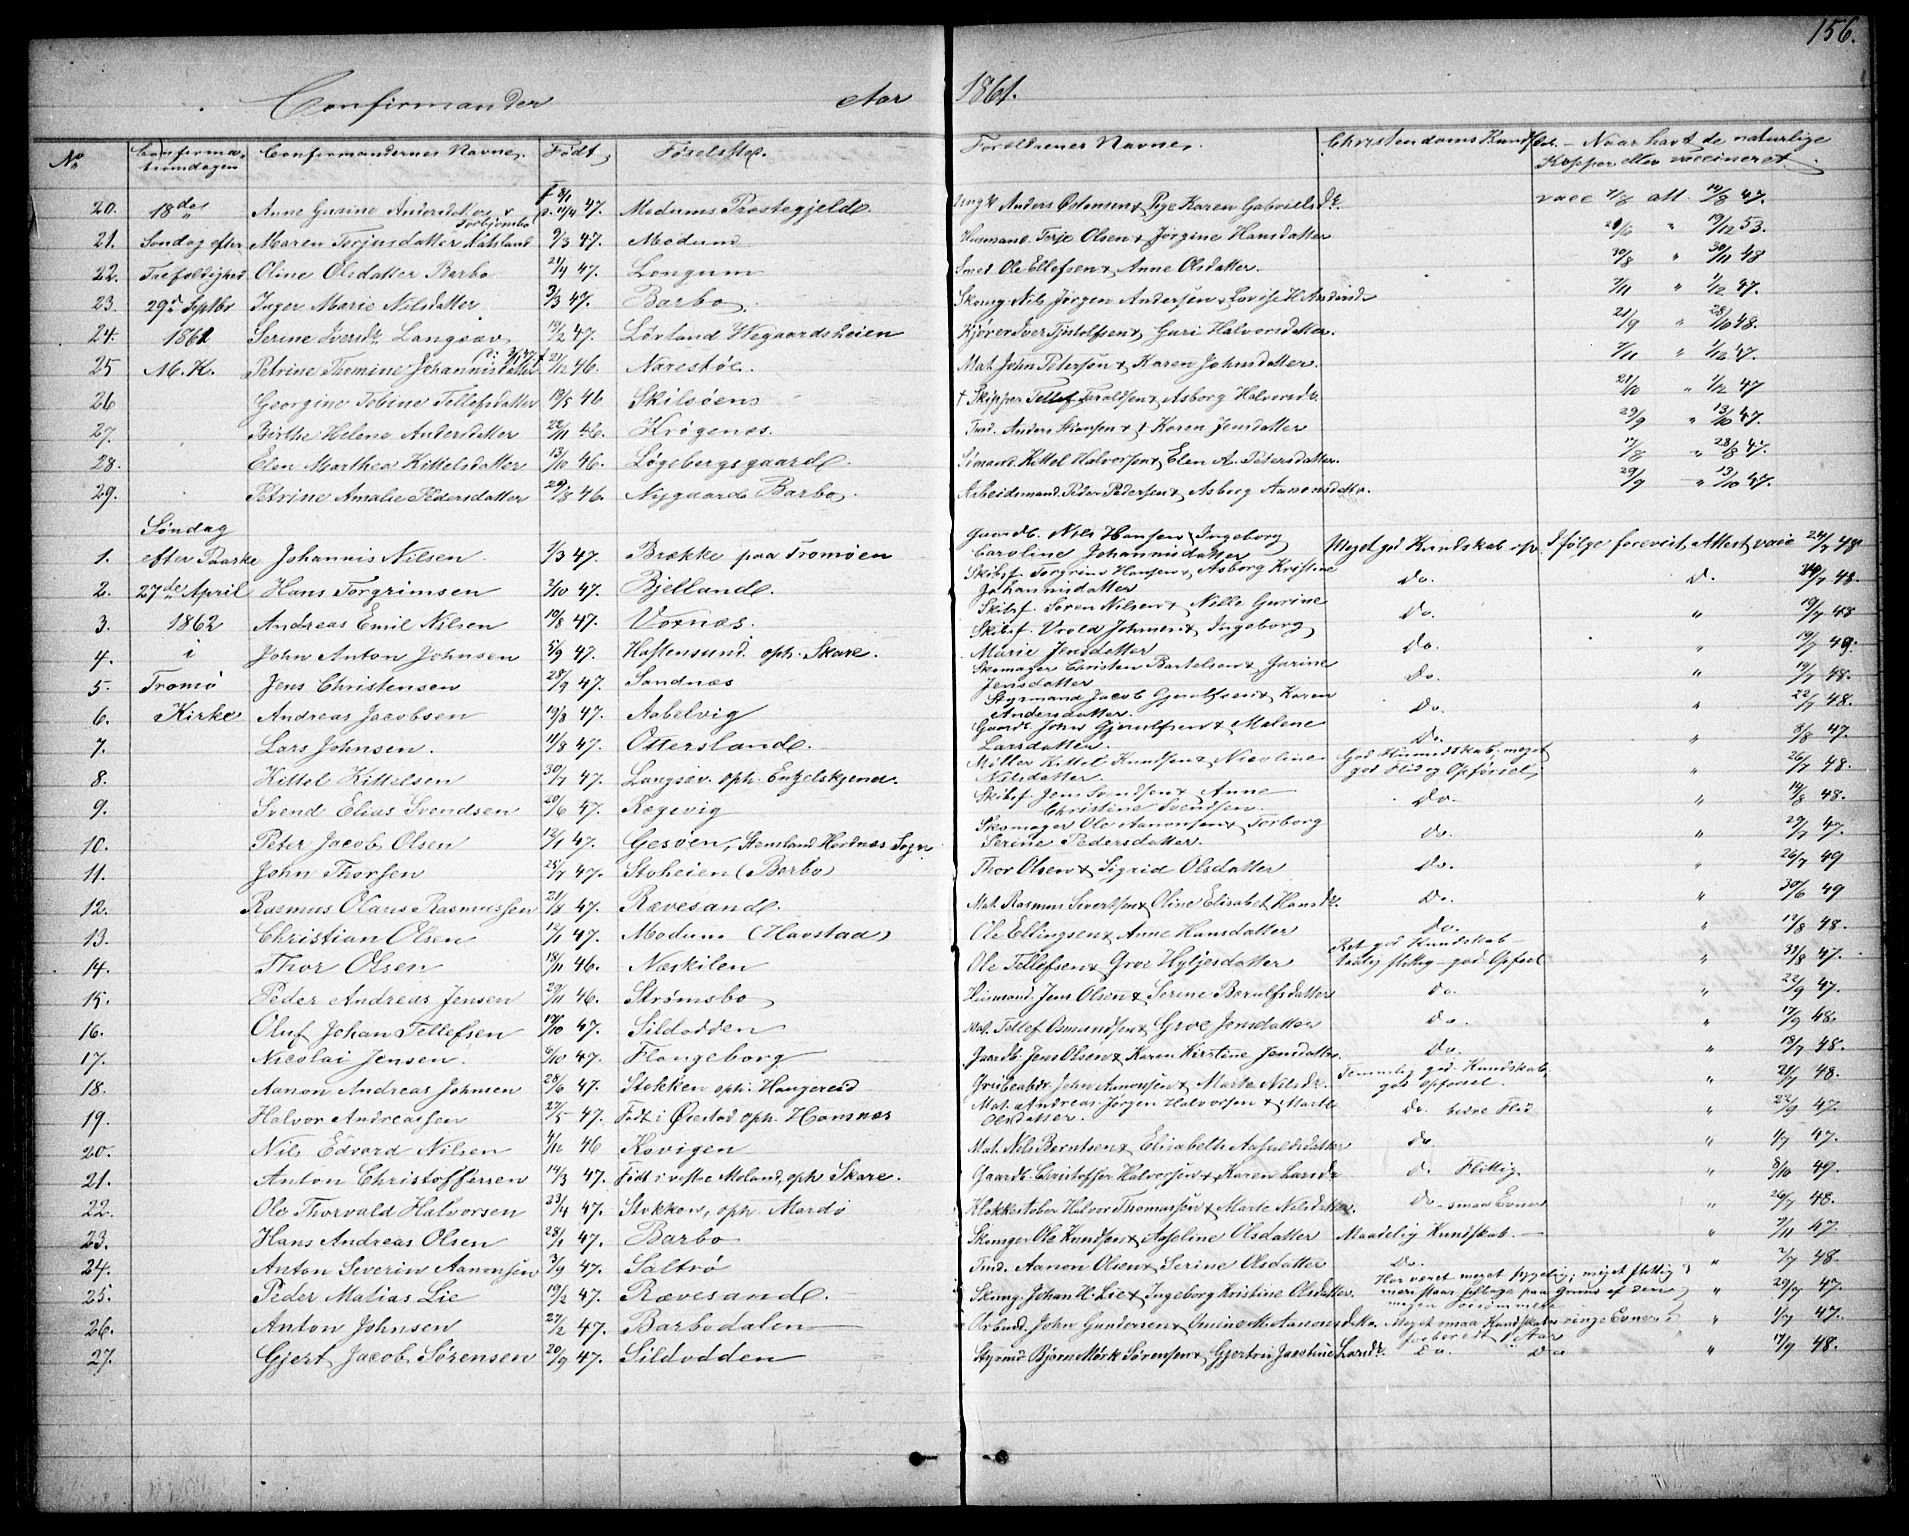 156.
Confirmander Aar 1861.
No Confirmationsdagen Confirmandernes Navne. Født, Føselsted. Forældrenes Navne. Christendoms Kundskab. – Naar havt de naturlige
Kopper eller vaccineret.
20. 18de Anne Gurine Andersdatter f 8/1 d. 11/4 47. Modums Prestegjeld. Ungk Anders Ostensen & Pige Karen Gabrielsdr. vacc 4/8 att. 14/8 47.
21. Søndag efter Maren Terjusdatter 9/3 47. Modum Husmand Terje Olsen & Jørgine Hansdatter 20/10 " 19/12 53.
22. Trefoldighed Oline Olsdatter Barbo 21/4 47. Longum Smed Ole Ellefsen & Anne Olsdatter. 30/8 " 30/11 48
23. 29de Septbr Inger Marie Nilsdatter 3/3 47. Barbo. Skomg. Nils Jørgen Andersen & Lovise H. Andersdr 2/11 " 1/12 47.
24. 1861 Serine Iversdr. Langsæv 19/2 47. Løvland Wegaardsheien Kjører Iver Tjostolfsen & Guri Halvorsdatter. 21/9 " 28/10 48.
25 M. K. Petrine Thomine Johannisdatter 21/12 46. Narestøe. Mat. John Petersøn & Karen Johnsdatter. 2/11 " 1/12 47.
26 Georgine Tobine Tellefsdatter 19/5 46 Skilsøens † Skipper Tellef Taraldsen & Asborg Halvorsdr. 21/10 " 1/12 47
27. Birthe Helene Andersdatter 22/11 46. Krøgenæs. Tmd. Anders Hansen & † Karen Jensdatter 29/9 " 13/10 47.
28. Elen Marthea Kittelsdatter 13/10 46. Løgebergsgaard. Sømand. Kittel Halvorsen & Elen A. Petersdatter. 17/8 " 28/8 47.
29. Petrine Amalie Pedersdatter 29/8 46. Nygaard Barbo. Arbeidsmand. Peder Pedersen & Asborg Aanonsdatter. 29/9 " 13/10 47.
Søndag Gaardb. Nils Hansen & Ingeborg
1. efter Paaske Johannis Nilsen 1/3 47. Brække paa Tromøen Caroline Johannisdatter Meget god Kundskab op. Ifølge foreviist Attest vacc 24/7 48
2. 27de April Hans Torgrimsen 2/10 47. Bjelland. Skibsf. Torgrim Hansen & Asborg Kristine Johannisdatter Do. D. 14/7 48.
3. 1862 Andreas Emil Nilsen 10/8 47. Voxnæs. Skibsf. Soren Nilsen & Nille Gurine Do. " 19/7 48
4. i John Anton Johnsen 5/9 47. Haftensund. oph. Skare. Skibsf. Vrold Johnsen & Ingeborg Marie Jensdatter Do. " 19/7 49.
5. Tromø Jens Christensen 28/9 47. Sandnæs Skomager Christen Bartelsen & Gurine Jensdatter Do. " 19/7 48.
6. Kirke Andreas Jacobsen 19/8 47. Aabelvig Styrmand Jacob Gjerulfsen & Karen Andersdatter. Do. " 22/7 48.
7. Lars Johnsen. 11/8 47. Ottersland. Gaardb. John Gjerulfsen & Malene Larsdatter. Do. " 8/8 47.
8. Kittel Kittelsen 30/7 47. Langsæv. oph. Engelskjenn. Møller Kittel Knudsen & Nicoline Nilsdatter. God Kundskab, meget god Flid og Opførsel, " 26/7 48.
9. Svend Elias Svendsen 20/6 47. Rægevig Skibsf. Jens Svendsen & Anne Christine Svendsen. Do. " 14/8 48.
10. Peter Jacob Olsen 12/1 47. Gesøen, Stensland Høvdnæs Sogn Skomager Ole Aanonsen & Torborg Serine Pedersdatter. Do. " 29/7 47.
11. John Thorsen 25/7 47. Stoheien (Barbo) Thor Olsen & Sigrid Olsdatter Do. " 26/7 49
12. Rasmus Olaus Rasmussen 21/8 47. Rævesand. Mat. Rasmus Sivertsen & Oline Elisabet Hansdr. Do. " 30/6 49
13. Christian Olsen 12/1 47. Modum (Havstad) Ole Ellingsen & Anne Hansdatter Do. " 12/8 48.
14. Thor Olsen 18/11 46. Næskilen Ole Tellefsen & Groe Hyljesdatter Ret god Kundskab – taalig flittig – god Opførsel " 31/8 47.
15. Peder Andreas Jensen 29/11 46. Strømsbo Husmand Jens Olsen & Serine Berulfsdatter Do. " 22/9 47.
16. Oluf Johan Tellefsen 17/10 47. Sildodden Mat. Tellef Osmundsen & Groe Jensdatter Do. " 17/9 48.
17. Nicolai Jensen. 6/10 47. Flangeborg Gaardb. Jens Olsen & Karen Kirstine Jensdatter. Do. " 18/7 48.
18. Aanon Andreas Johnsen 28/6 47. Stokken oph. Haugereid Grubearb. John Aanonsen & Marte Nilsdr. Temmelig god Kundskab, god Opførsel. " 21/7 48.
19. Halvor Andreassen 27/5 47. Født i Øiestad oph. Hansnæs Mat. Andreas Jørgen Halvorsen & Marte Olsdatter. Do. bedre Flid " 22/9 47.
20. Nils Edvard Nilsen 4/10 46 Kovigen Mat. Nils Berntsen & Elisabeth Asfuldsdatter Do " 1/7 47.
21. Anton Christoffersen 14/3 47. Født i vestre Moland, oph. Skare. Gaardb. Christoffer Halvorsen & Karen Larsdr D. Flittig " 8/10 49.
22. Ole Thorvald Halvorsen 23/4 47. Stokken, oph. Mardø Klokkestøber Halvor Thomassen & Marte Nilsdatter Do – smaa Evner " 26/7 48.
23. Hans Andreas Olsen 28/1 47. Barbo Skomger Ole Knudsen & Aseline Olsdatter Maadelig Kundskab. – " 2/11 47.
24. Anton Severin Aanonsen 3/9 47. Saltrø Tmd. Aanon Olsen & Serine Olsdatter Do. " 2/7 48.
25. Peder Matias Lie 19/2 47. Rævesand. Skomg. Johan H. Lie & Ingeborg Kristine Olsdatter. Har været meget sygelig; meget flittig; men staar tilbage paa Grund af den megen Forsømmelse " 29/7 47.
26. Anton Johnsen 27/2 47. Barbodalen Arbmd. John Gundersen & Gurine M. Aanonsd. Meget smaa Kundskaber ringe Evner forberedt 1 Aar " 1/7 47.
27. Gjert Jacob Sørensen 20/9 47. Sildodden Styrmd Bjørn Mørk Sørensen & Gjertru Jacobine Larsdr. Do. Do " 17/9 48.